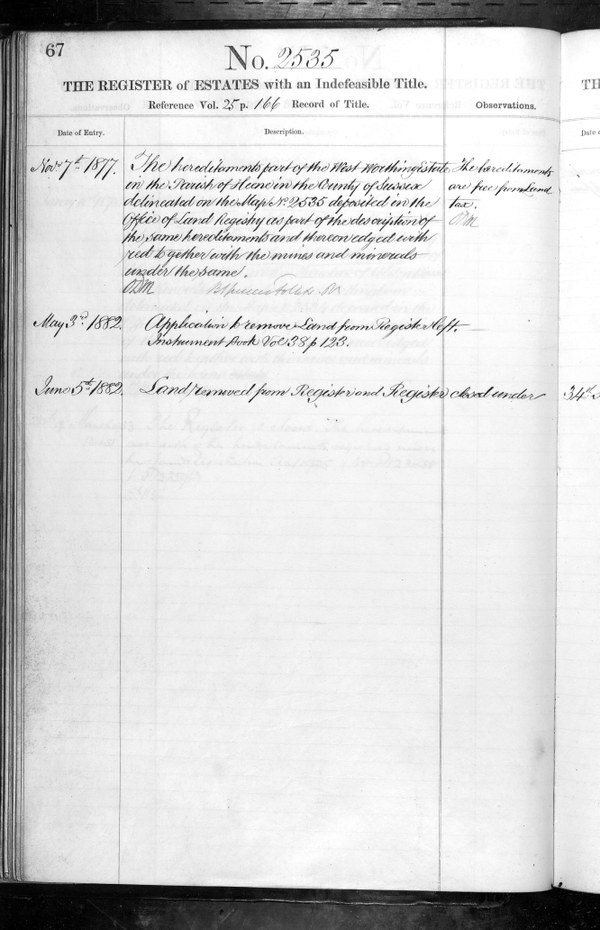 67
No. 2535
THE REGISTER of ESTATES with an Indefeasible Title.
Reference Vol. 25 p. 166 Record of Title.
Observations.
Date of Entry.
Description.
Novr 7th 1877.
The hereditaments part of the West Worthing Estate
in the Parish of Heene in the County of Sussex
delineated on the Map No 2535 deposited in the
Office of Land Registry as part of the description of
the same hereditaments and thereon edged with
red together with the mines and minerals
under the same.
The hereditaments
are free from Land
tax.
May 3rd 1882.
Application to remove Land from Register left.
Instrument Book Vol 38 p 123.
June 5th 1882.
Land removed from Register and Register closed under
34th
TH
Date o